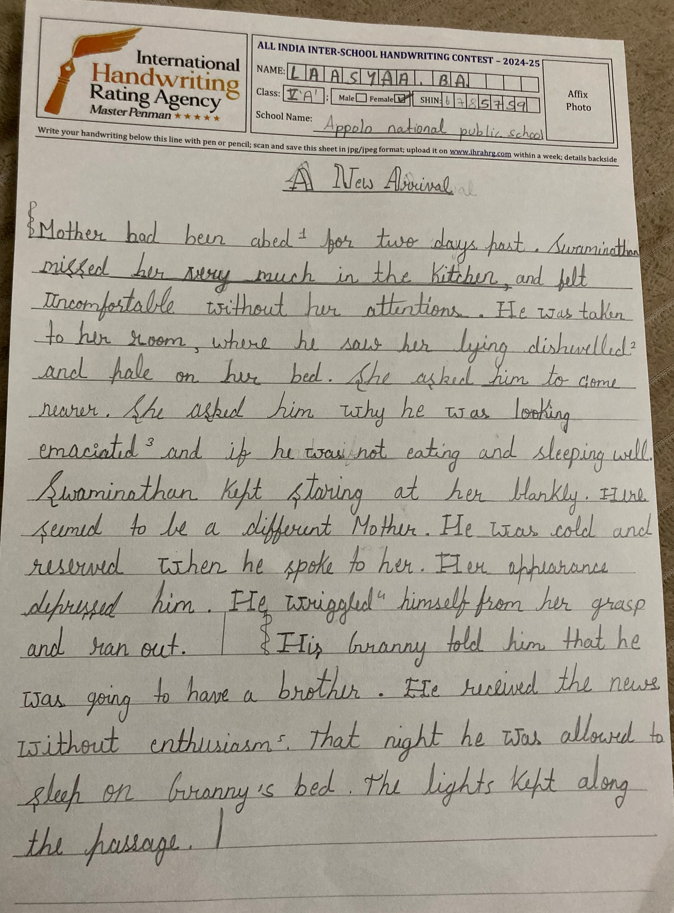 International
Handwriting
Rating Agency
Master Penman ★★★★★
ALL INDIA INTER-SCHOOL HANDWRITING CONTEST - 2024-25
NAME: LAASYAA. BA
Class: V 'A' Male Female SHIN: 6785759
School Name: Appolo national public school
Affix
Photo
Write your handwriting below this line with pen or pencil; scan and save this sheet in jpg/jpeg format; upload it on www.ihrahrg.com within a week; details backside
A New Arrival
Mother had been abed¹ for two days past. Swaminathan
missed her very much in the Kitchen, and felt
uncomfortable without her attentions. He was taken
to her room, where he saw her lying dishevelled²
and pale on her bed. She asked him to come
nearer. She asked him why he was looking
emaciated³ and if he was not eating and sleeping well.
Swaminathan kept staring at her blankly. Here
seemed to be a different Mother. He was cold and
reserved when he spoke to her. Her appearance
depressed him. He wriggled⁴ himself from her grasp
and ran out. His Granny told him that he
was going to have a brother. He received the news
without enthusiasm⁵. That night he was allowed to
sleep on Granny's bed. The lights kept along
the passage.